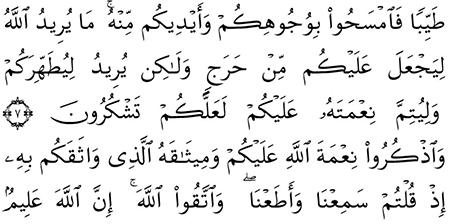 طَيِّبٗا فَٱمۡسَحُواْ بِوُجُوهِكُمۡ وَأَيۡدِيكُم مِّنۡهُۚ مَا يُرِيدُ ٱللَّهُ
لِيَجۡعَلَ عَلَيۡكُم مِّنۡ حَرَجٖ وَلَٰكِن يُرِيدُ لِيُطَهِّرَكُمۡ
وَلِيُتِمَّ نِعۡمَتَهُۥ عَلَيۡكُمۡ لَعَلَّكُمۡ تَشۡكُرُونَ ٧
وَٱذۡكُرُواْ نِعۡمَةَ ٱللَّهِ عَلَيۡكُمۡ وَمِيثَٰقَهُ ٱلَّذِي وَاثَقَكُم بِهِۦٓ
إِذۡ قُلۡتُمۡ سَمِعۡنَا وَأَطَعۡنَاۖ وَٱتَّقُواْ ٱللَّهَۚ إِنَّ ٱللَّهَ عَلِيمُۢ